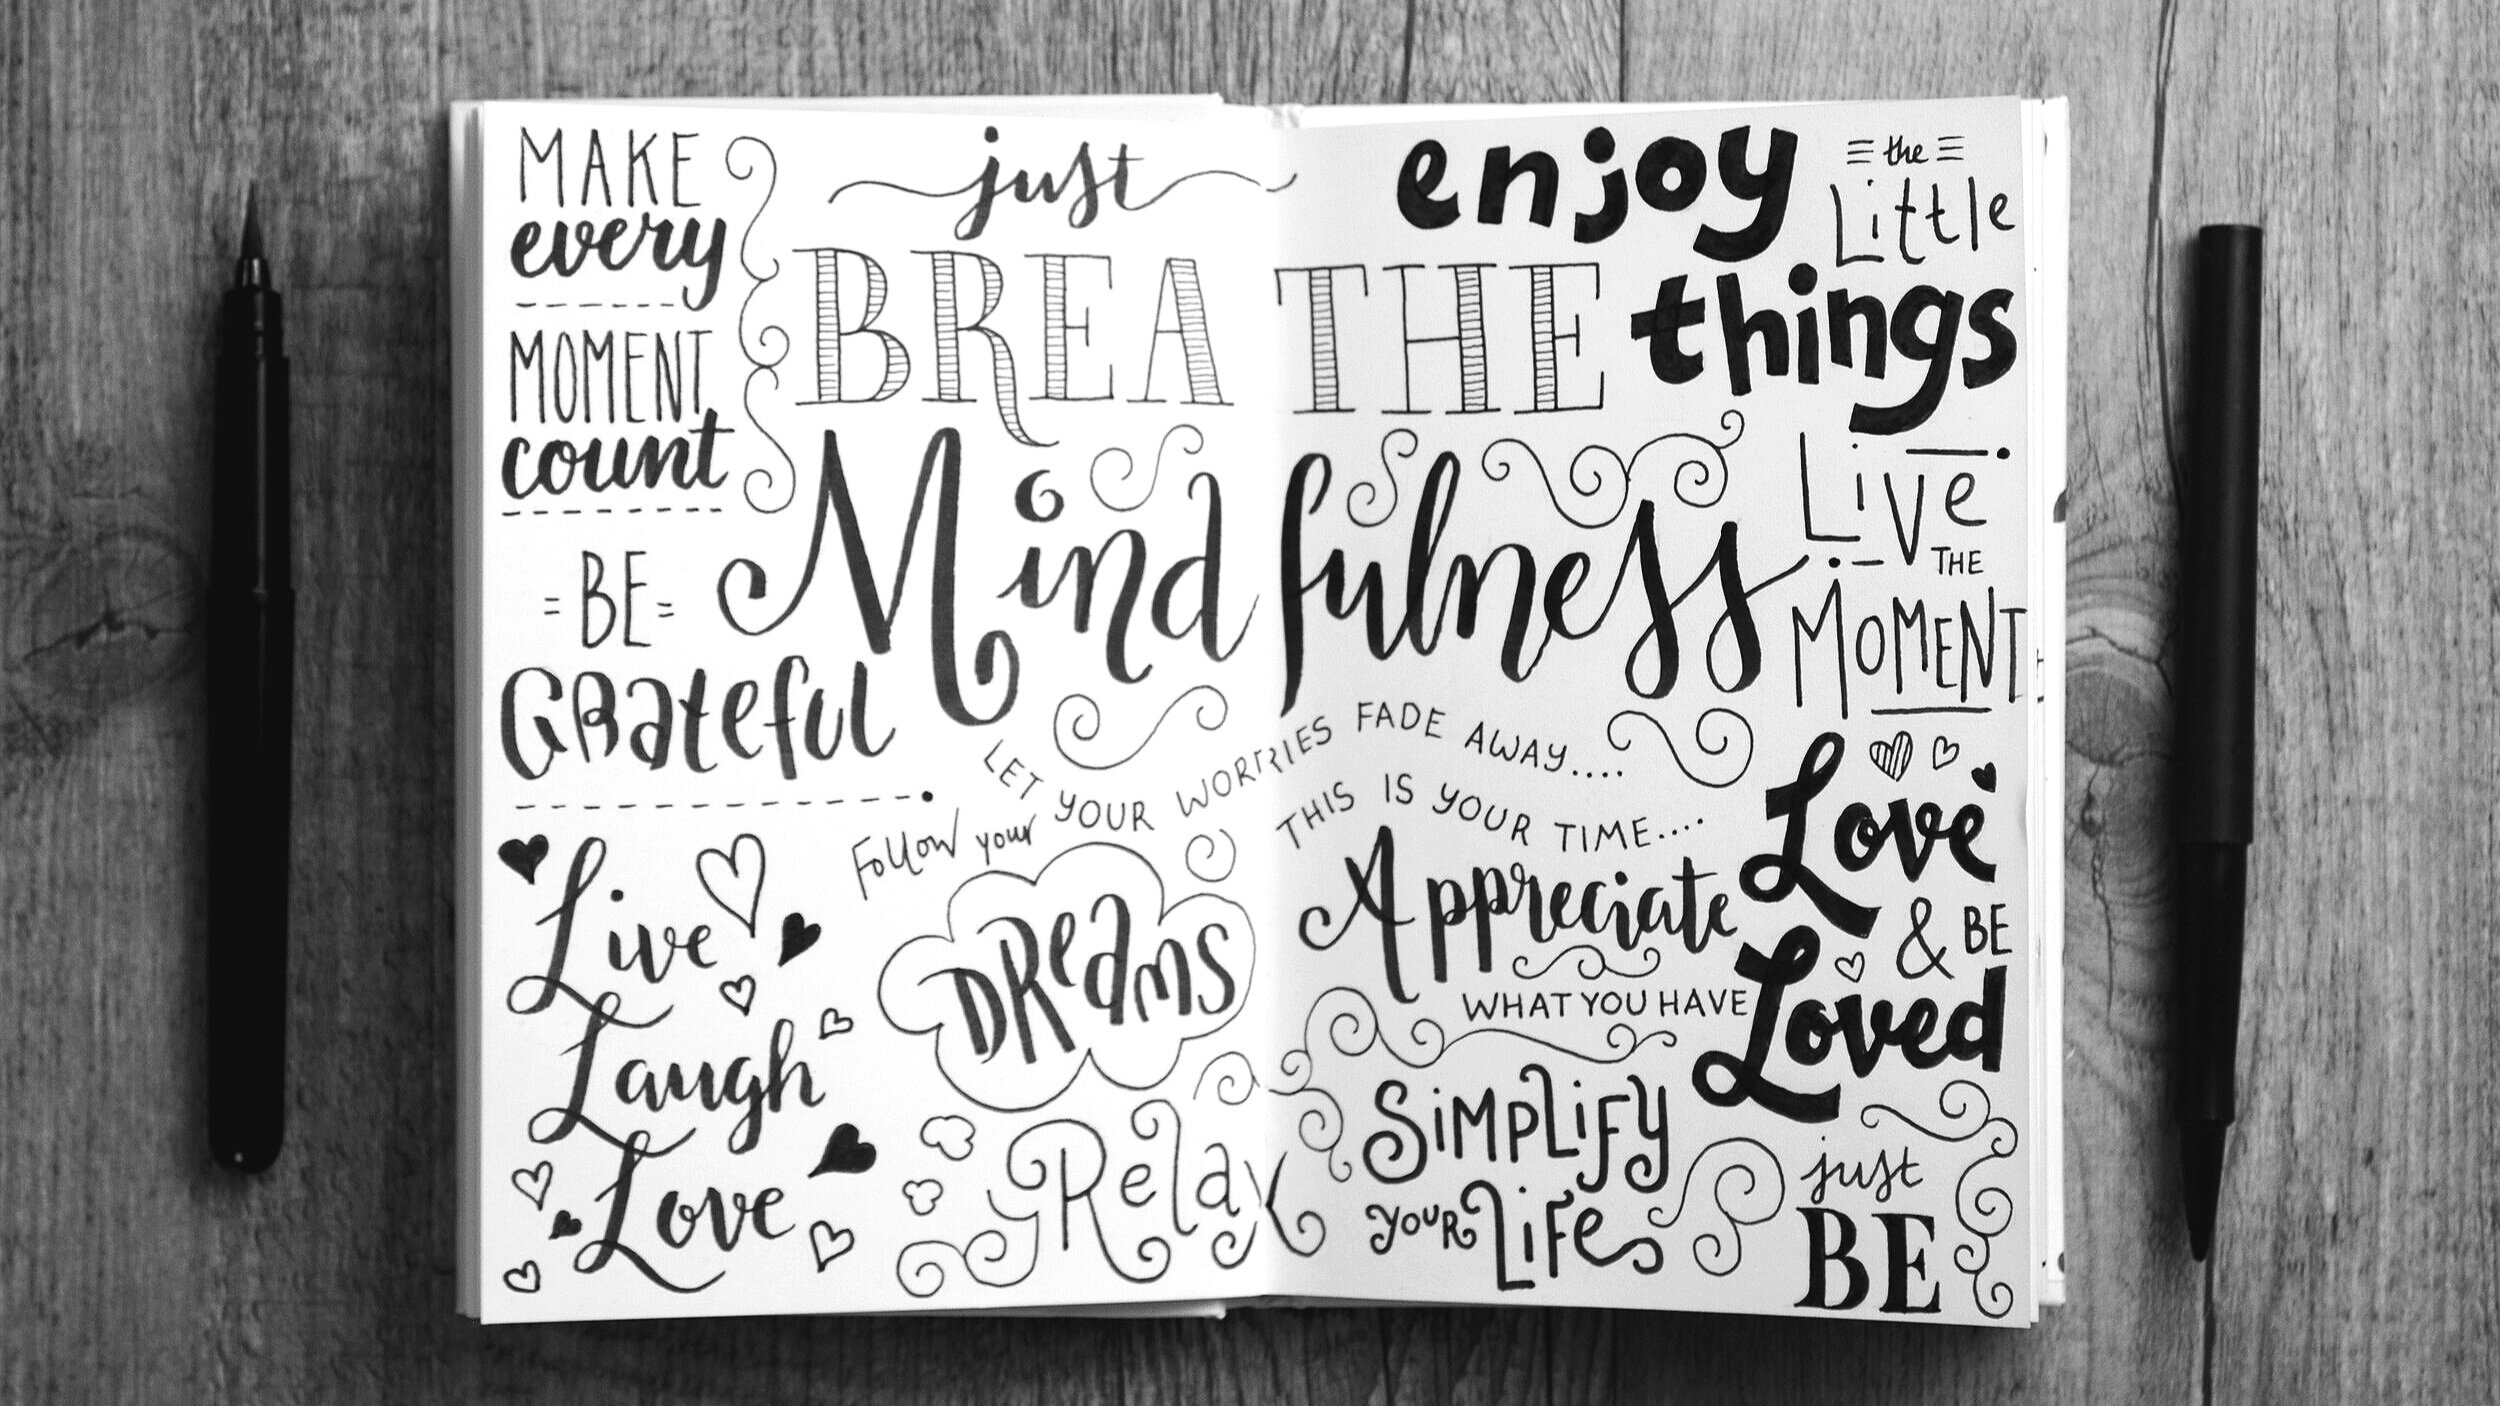 MAKE
every
MOMENT
count
just
BREATHE
enjoy
the
Little
things
Mindfulness
LiVe
THE
MoMENT
=BE=
GRateful
LET YOUR WORRIES FADE AWAY....
THIS IS YOUR TIME....
Follow your
DReams
Live
Laugh
Love
Relax
Appreciate
WHAT YOU HAVE
SiMPLiFy
YOUR LiFe
Love
& BE
Loved
just
BE